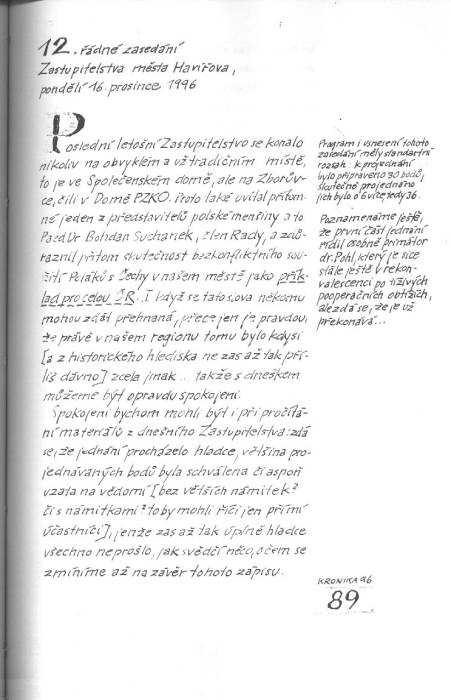 12. řádné zasedání
Zastupitelstva města Havířova,
pondělí 16. prosince 1996
Poslední letošní Zastupitelstvo se konalo
nikoliv na obvyklém a už tradičním místě,
to je ve Společenském domě, ale na Zborův-
ce, čili v Domě PZKO. Proto také uvítal přítom-
né jeden z představitelů polské menšiny a to
PaedDr Bohdan Suchanek, člen Rady, a zdů-
raznil přitom skutečnost bezkonfliktního sou-
žití Poláků s Čechy v našem městě jako přík-
lad pro celou ČR. I když se tato slova někomu
mohou zdát přehnaná, přece jen je pravdou,
že právě v našem regionu tomu bylo kdysi
[a z historického hlediska ne zas až tak pří-
liš dávno] zcela jinak... takže s dneškem
můžeme být opravdu spokojeni.
Spokojeni bychom mohli být i při pročítá-
ní materiálů z dnešního Zastupitelstva: zdá
se, že jednání procházelo hladce, většina pro-
jednávaných bodů byla schválena či aspoň
vzata na vědomí [bez větších námitek?
či s námitkami? to by mohli říci jen přímí
účastníci], jenže zas až tak úplně hladce
všechno neprošlo, jak svědčí něco, o čem se
zmíníme až na závěr tohoto zápisu.
Program i usnesení tohoto
zasedání měly standartní
rozsah: k projednání
bylo připraveno 30 bodů,
skutečně projednáno
jich bylo o 6 více, tedy 36.
Poznamenáme ještě,
že první část jednání
řídil osobně primátor
dr. Pohl, který je sice
stále ještě v rekon-
valescenci po tíživých
pooperačních obtížích,
ale zdá se, že je už
překonává...
KRONIKA 96
89